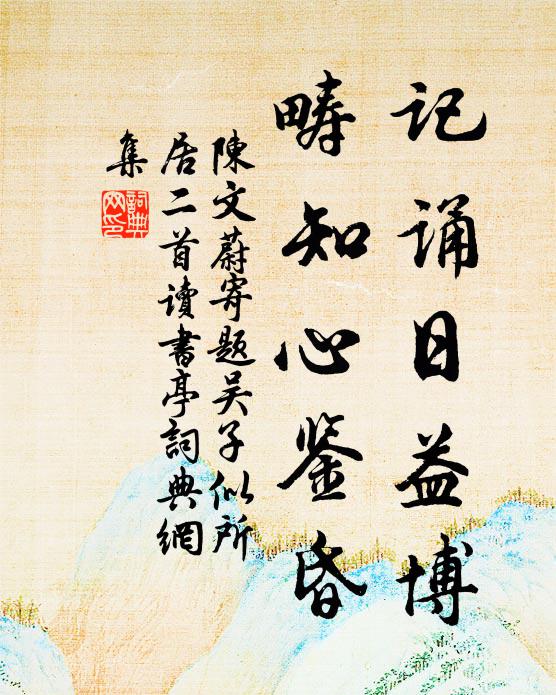 记诵日益博
畴知心鉴昏
陳文蔚寄題吴子似所
居二首讀書亭詞典網
集
詞典网印